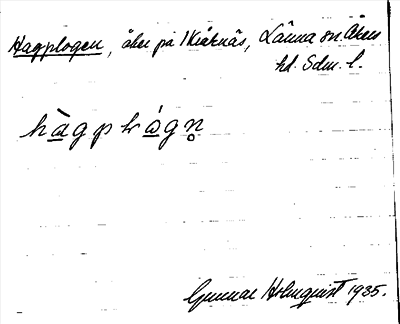 Hagplogen, åker på Kiäknäs, Länna sn. Åkers
hd. Sdm. l.
hàgplágn̥
Gunnar Holmquist 1935.